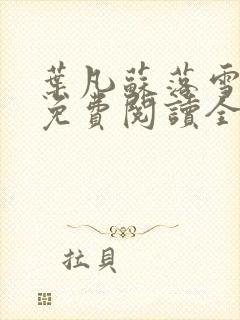 葉凡蘇落雪
免費閱讀全
拉貝